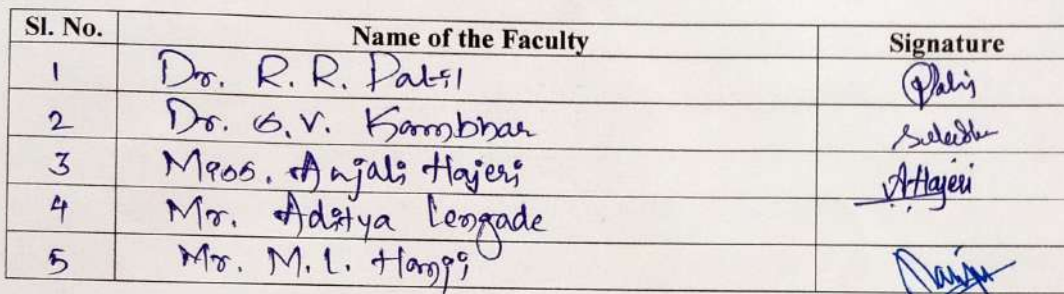 Sl. No. Name of the Faculty Signature
1 Dr. R. R. Patil
2 Dr. S. V. Kambhar
3 Mrs. Anjali Hajeri AHajeri
4 Mr. Aditya Lengade
5 Mr. M. L. Hangi